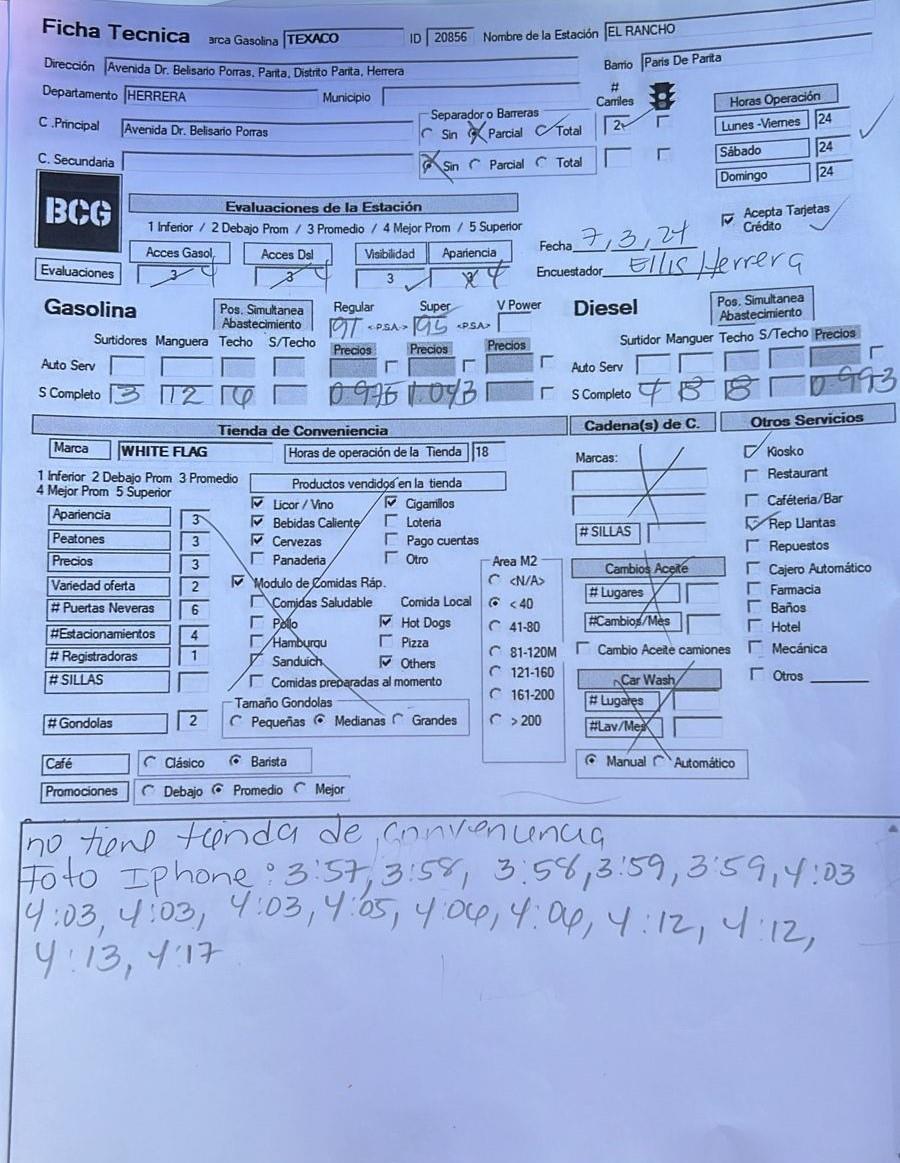 Ficha Tecnica arca Gasolina TEXACO ID 20856 Nombre de la Estación EL RANCHO
Dirección Avenida Dr. Belisario Porras, Parita, Distrito Parita, Herrera Barrio Paris De Parita
Departamento HERRERA Municipio # Carriles
C .Principal Avenida Dr. Belisario Porras Separador o Barreras Sin Parcial Total 2
C. Secundaria Sin Parcial Total
Horas Operación
Lunes -Viernes 24
Sábado 24
Domingo 24
BCG
Evaluaciones de la Estación
1 Inferior / 2 Debajo Prom / 3 Promedio / 4 Mejor Prom / 5 Superior
Acces Gasol Acces Dsl Visibilidad Apariencia
Evaluaciones 3 4 3 4 3 4
Acepta Tarjetas Crédito
Fecha 7, 3, 24
Encuestador Ellis Herrera
Gasolina Pos. Simultanea Abastecimiento Regular Super V Power
91 <-P.S.A.-> 95 <-P.S.A>
Surtidores Manguera Techo S/Techo Precios Precios Precios
Auto Serv
S Completo 3 12 6 0.975 1.043
Diesel Pos. Simultanea Abastecimiento
Surtidor Manguer Techo S/Techo Precios
Auto Serv
S Completo 4 8 8 0.993
Tienda de Conveniencia
Marca WHITE FLAG Horas de operación de la Tienda 18
1 Inferior 2 Debajo Prom 3 Promedio
4 Mejor Prom 5 Superior
Apariencia 3
Peatones 3
Precios 3
Variedad oferta 2
# Puertas Neveras 6
#Estacionamientos 4
# Registradoras 1
# SILLAS
# Gondolas 2
Productos vendidos en la tienda
Licor / Vino Cigarrillos
Bebidas Caliente Loteria
Cervezas Pago cuentas
Panaderia Otro
Modulo de Comidas Ráp.
Comidas Saludable Comida Local
Pollo Hot Dogs
Hamburqu Pizza
Sanduich Others
Comidas preparadas al momento
Tamaño Gondolas
Pequeñas Medianas Grandes
Area M2
<N/A>
< 40
41-80
81-120M
121-160
161-200
> 200
Café Clásico Barista
Promociones Debajo Promedio Mejor
Cadena(s) de C.
Marcas:
# SILLAS
Cambios Aceite
# Lugares
#Cambios/Mes
Cambio Aceite camiones
Car Wash
# Lugares
#Lav/Mes
Manual Automático
Otros Servicios
Kiosko
Restaurant
Caféteria/Bar
Rep Llantas
Repuestos
Cajero Automático
Farmacia
Baños
Hotel
Mecánica
Otros
no tiene tienda de conveniencia
Foto Iphone: 3:57, 3:58, 3:58, 3:59, 3:59, 4:03
4:03, 4:03, 4:03, 4:05, 4:06, 4:06, 4:12, 4:12,
4:13, 4:17